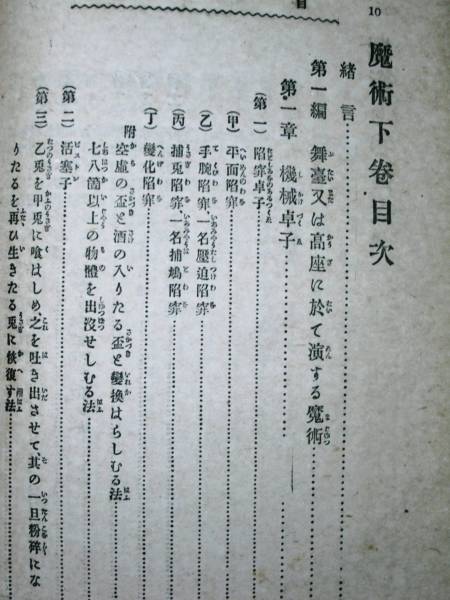 目
10
魔術下卷目次
緒言
第一編 舞臺又は高座に於て演する魔術
第一章 機械卓子
(第一) 陷穽卓子
(甲) 平面陷穽
(乙) 手腕陷穽一名壓迫陷穽
(丙) 捕兎陷穽一名捕鳩陷穽
(丁) 變化陷穽
附 空虛の盃と酒の入りたる盃と變換はらしむる法
七八箇以上の物體を出沒せしむる法
(第二) 活塞子
(第三) 乙兎を甲兎に喰はしめ之を吐き出させて其の一旦粉碎にな
りたるを再ひ生きたる兎に恢復す法